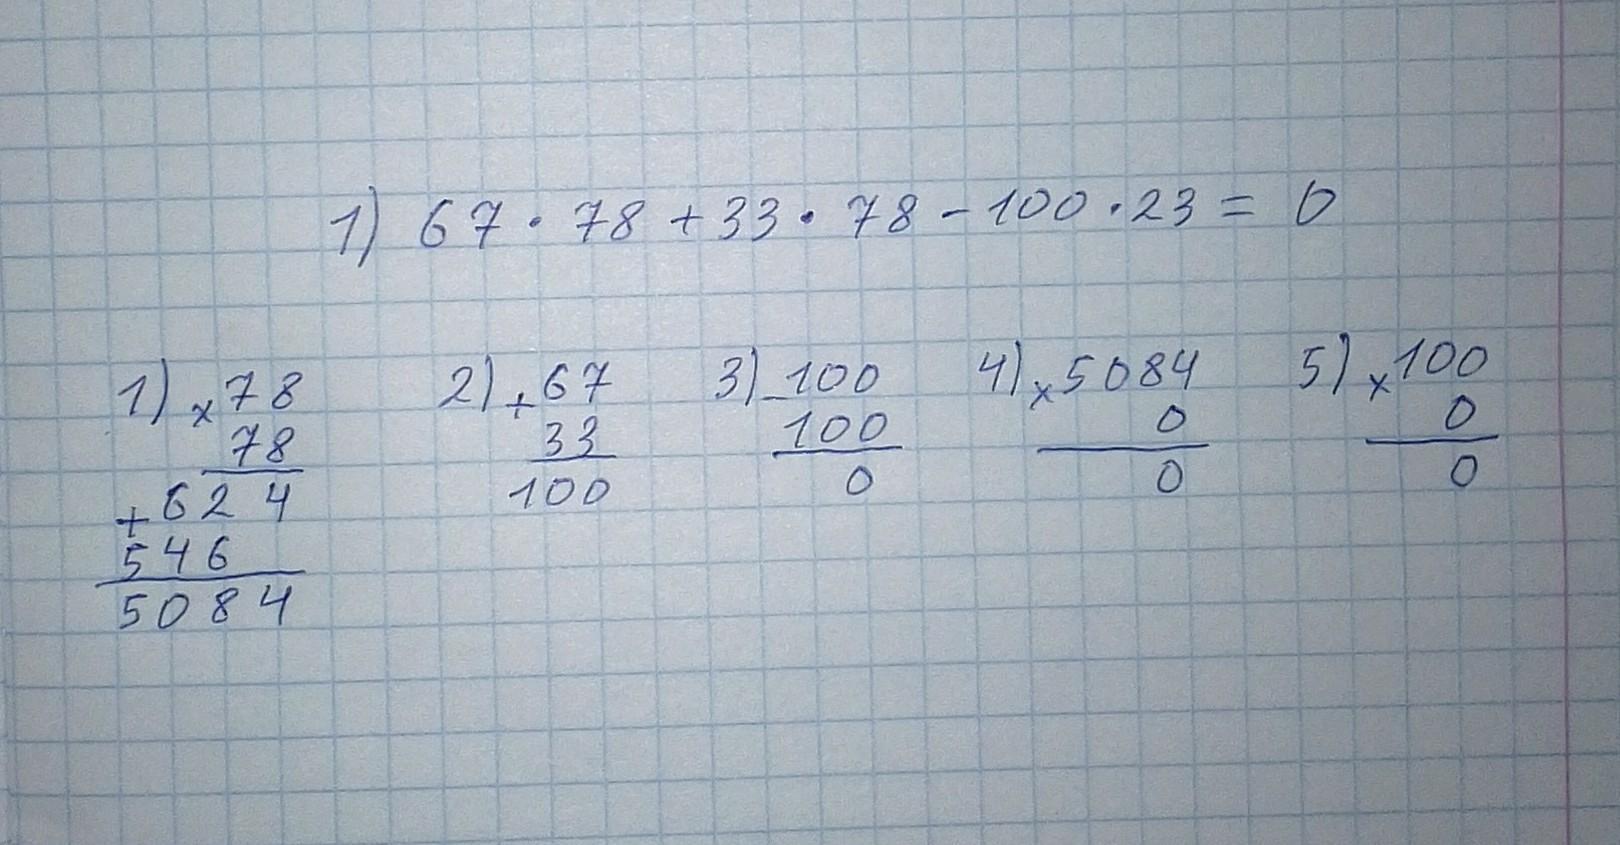 1) 67 · 78 + 33 · 78 - 100 · 23 = 0
1) × 78
78
+ 624
546
5084
2) + 67
33
100
3) - 100
100
0
4) × 5084
0
0
5) × 100
0
0